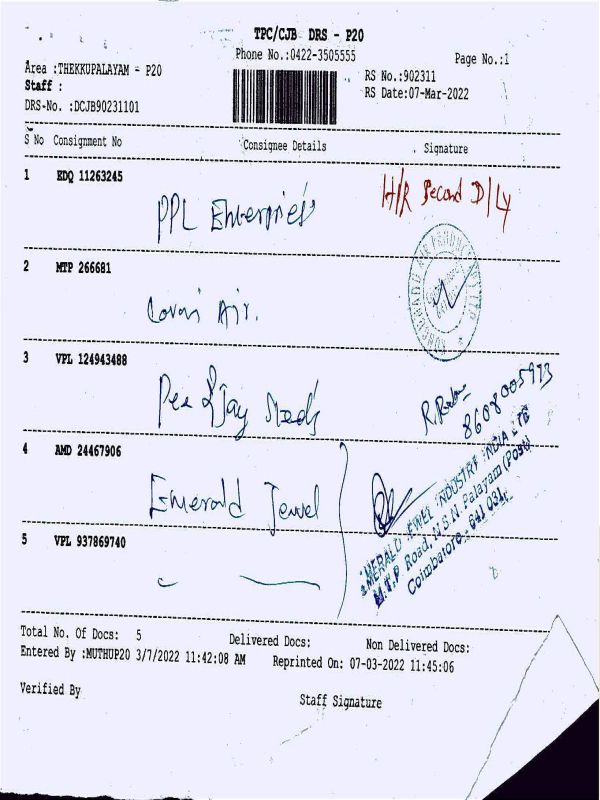 TPC/CJB DRS - P20
Phone No.:0422-3505555
Page No.:1
Area :THEKKUPALAYAM - P20
RS No.:902311
Staff :
RS Date:07-Mar-2022
DRS-No. :DCJB90231101
S No Consignment No Consignee Details Signature
1 EDQ 11263245
PPL Enterprises
H/R Second D/Ly
2 MTP 266681
Covai Air.
3 VPL 124943488
Pee Jay
8608005973
4 AMD 24467906
Emerald Jewel
EMERALD JEWEL INDUSTRY INDIA LTD
M.T.P Road, N.S.N. Palayam (Post)
Coimbatore - 641 031.
5 VPL 937869740
Total No. Of Docs: 5 Delivered Docs: Non Delivered Docs:
Entered By :MUTHUP20 3/7/2022 11:42:08 AM Reprinted On: 07-03-2022 11:45:06
Verified By Staff Signature